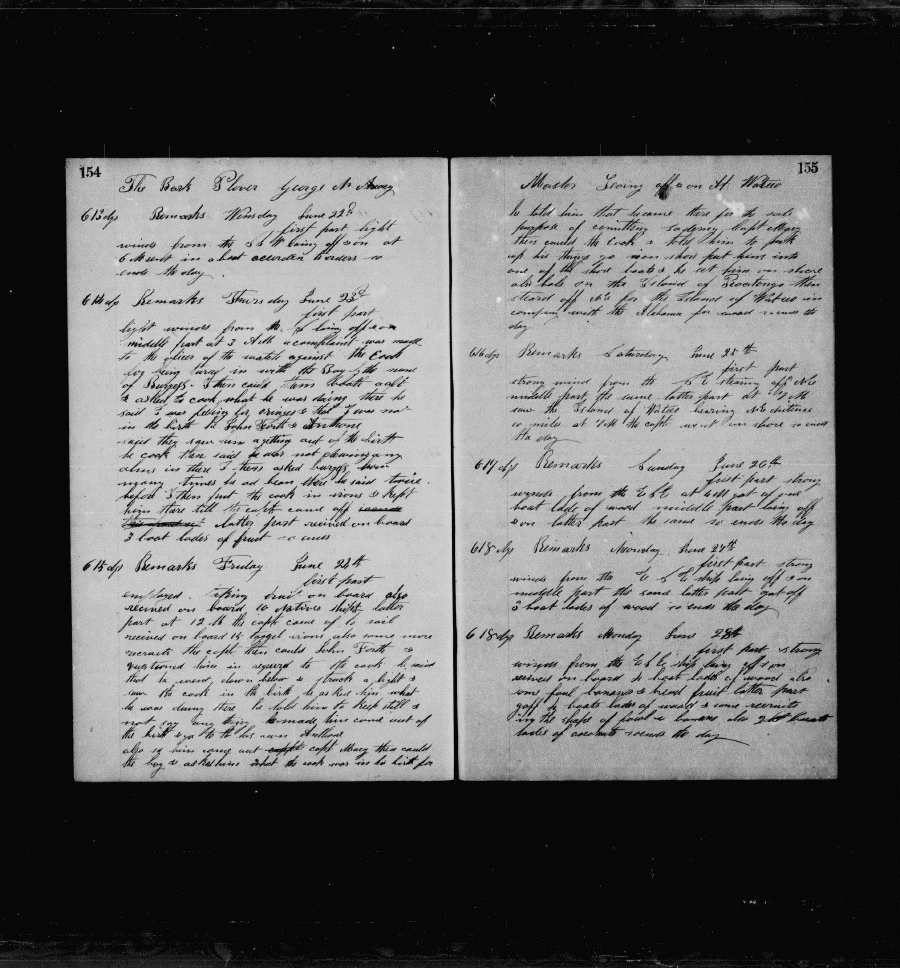 154
The Bark Plover George N Macy
613 dys Remarks Winsday June 22d
first part light
winds from the S E W being off & on at
6 A M sent in a boat accordin to orders so
ends the day
614 dys Remarks Thursday June 23d
first part
light winds from the S E laing off & on
middle part at 3 A M a complaint was made
to the officer of the watch against the Cook
for being in with the Boy by the name
of Burges I then
& asked to cook what he was doing there he
said I was feeling for oringes & that I was not
in the birth John Forth & Anthone
said they saw him agetting out of the birth
the cook then said he was not
there I then asked burges how
many times he had been there he said twice
before I then put the cook in irons & kept
him there till the capt came off
latter part recived on board
3 boat lodes of fruit so ends
615 dys Remarks Friday June 24th
first part
employed fruit on board also
recived on board 10 Natives latter
part at 12 M the capt came of to sail
recived on board 15 also some more
recruits the capt then could John Forth &
questioned him in regurd to the cook he said
that he went down below & struck a light &
saw the cook in the birth he asked him what
he was duing there he told him to keep still &
not say any thing he made him come out of
the birth & go to his own Anthone
also so him come out capt Macy then could
the boy & asked him what the cook was in his birth for
155
Master Laing off & on At Wateeo
he told him that he came there for the sole
purpose of comitting sodermy Capt Macy
then could the Cook & told him to pick
up his things go on shore put him into
one of the shore boats & he set him on shore
on the Island of then
steard off N E for the Island of Wateeo in
company with the Alabama for wood so ends the
day
616 dys Remarks Saturday June 25th
first part
strong wind from the E S E stearing off N E
middle part the same latter part at A M
saw the Island of Wateeo bearing N E distance
20 miles at 7 A M the capt went on shore so ends
the day
617 dys Remarks Sunday June 26th
first part strong
winds from the E S E at 4 P M got of one
boat lode of wood middle part laing off
& on latter part the same so ends the day
618 dys Remarks Monday June 27th
first part strong
winds from the E S E ship laing off & on
middle part the same latter part got off
3 boat lodes of wood so ends the day
618 dys Remarks Monday June 28th
first part strong
winds from the E S E ship laing off & on
recived on board boat lods of wood also
some foul bananas & bread fruit latter part
goff boats lodes of wood & some recruits
in the shape of fowl & banans also 2 boats
lodes of cocoanuts so ends the day